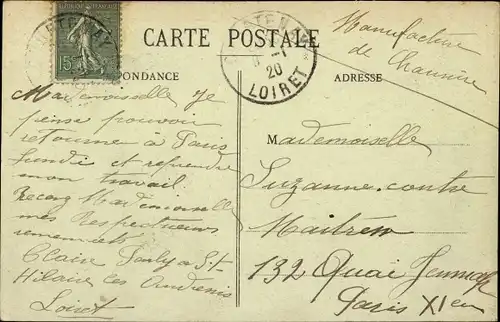 CARTE POSTALE
15
20
LOIRET
Manufacture
de
PONDANCE
ADRESSE
Mademoiselle Je
pense pouvoir
retourne à Paris
lundi et reprendre
mon travail
Recevez Mademoiselle
mes Respectueux
Claire à St-
Hilaire les Andrésis
Loiret
Mademoiselle
Suzanne contre
Maitresse
132 Quai Jemmap
Paris XI em